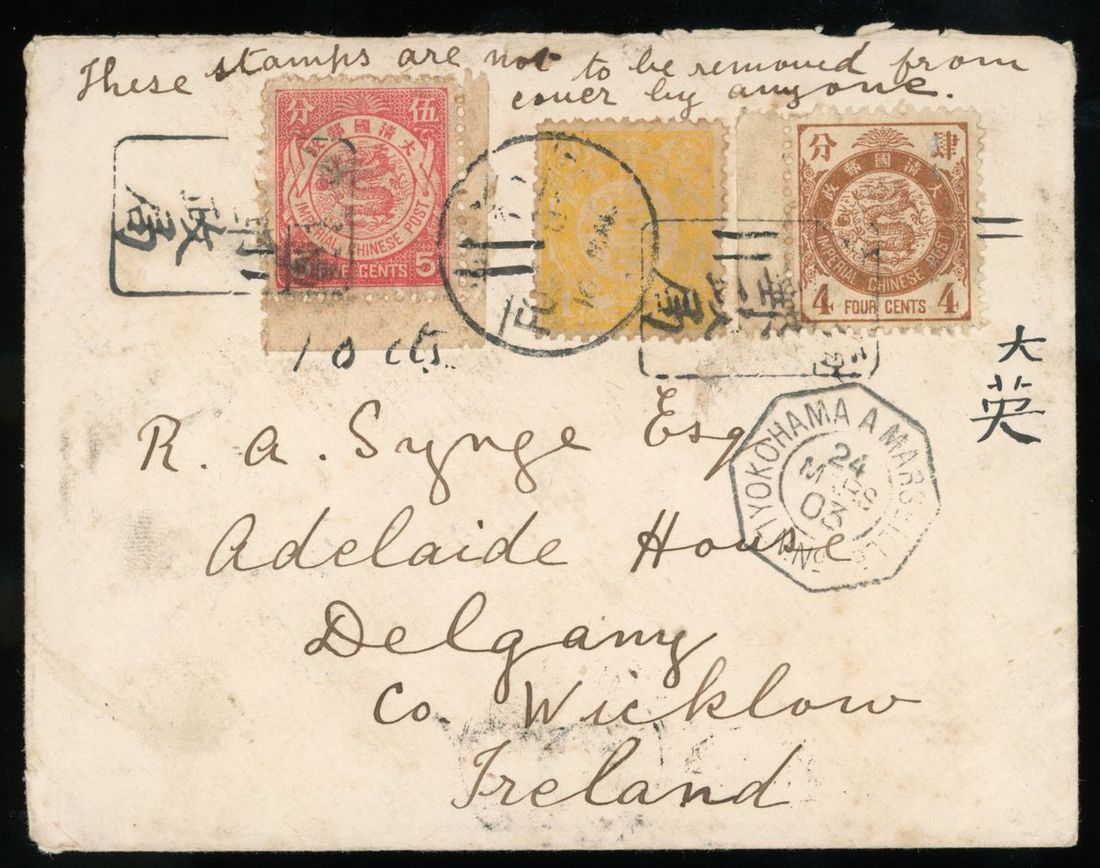 These stamps are not to be removed from
cover by anyone.
分 伍
大清國郵政
IMPERIAL CHINESE POST
FIVE CENTS 5
分 肆
大清國郵政
IMPERIAL CHINESE POST
4 FOUR CENTS 4
10 cts
大英
R. A. Synge Esq
Adelaide House
Delgany
Co. Wicklow
Ireland
YOKOHAMA A MARSEILLE
24
MARS
03